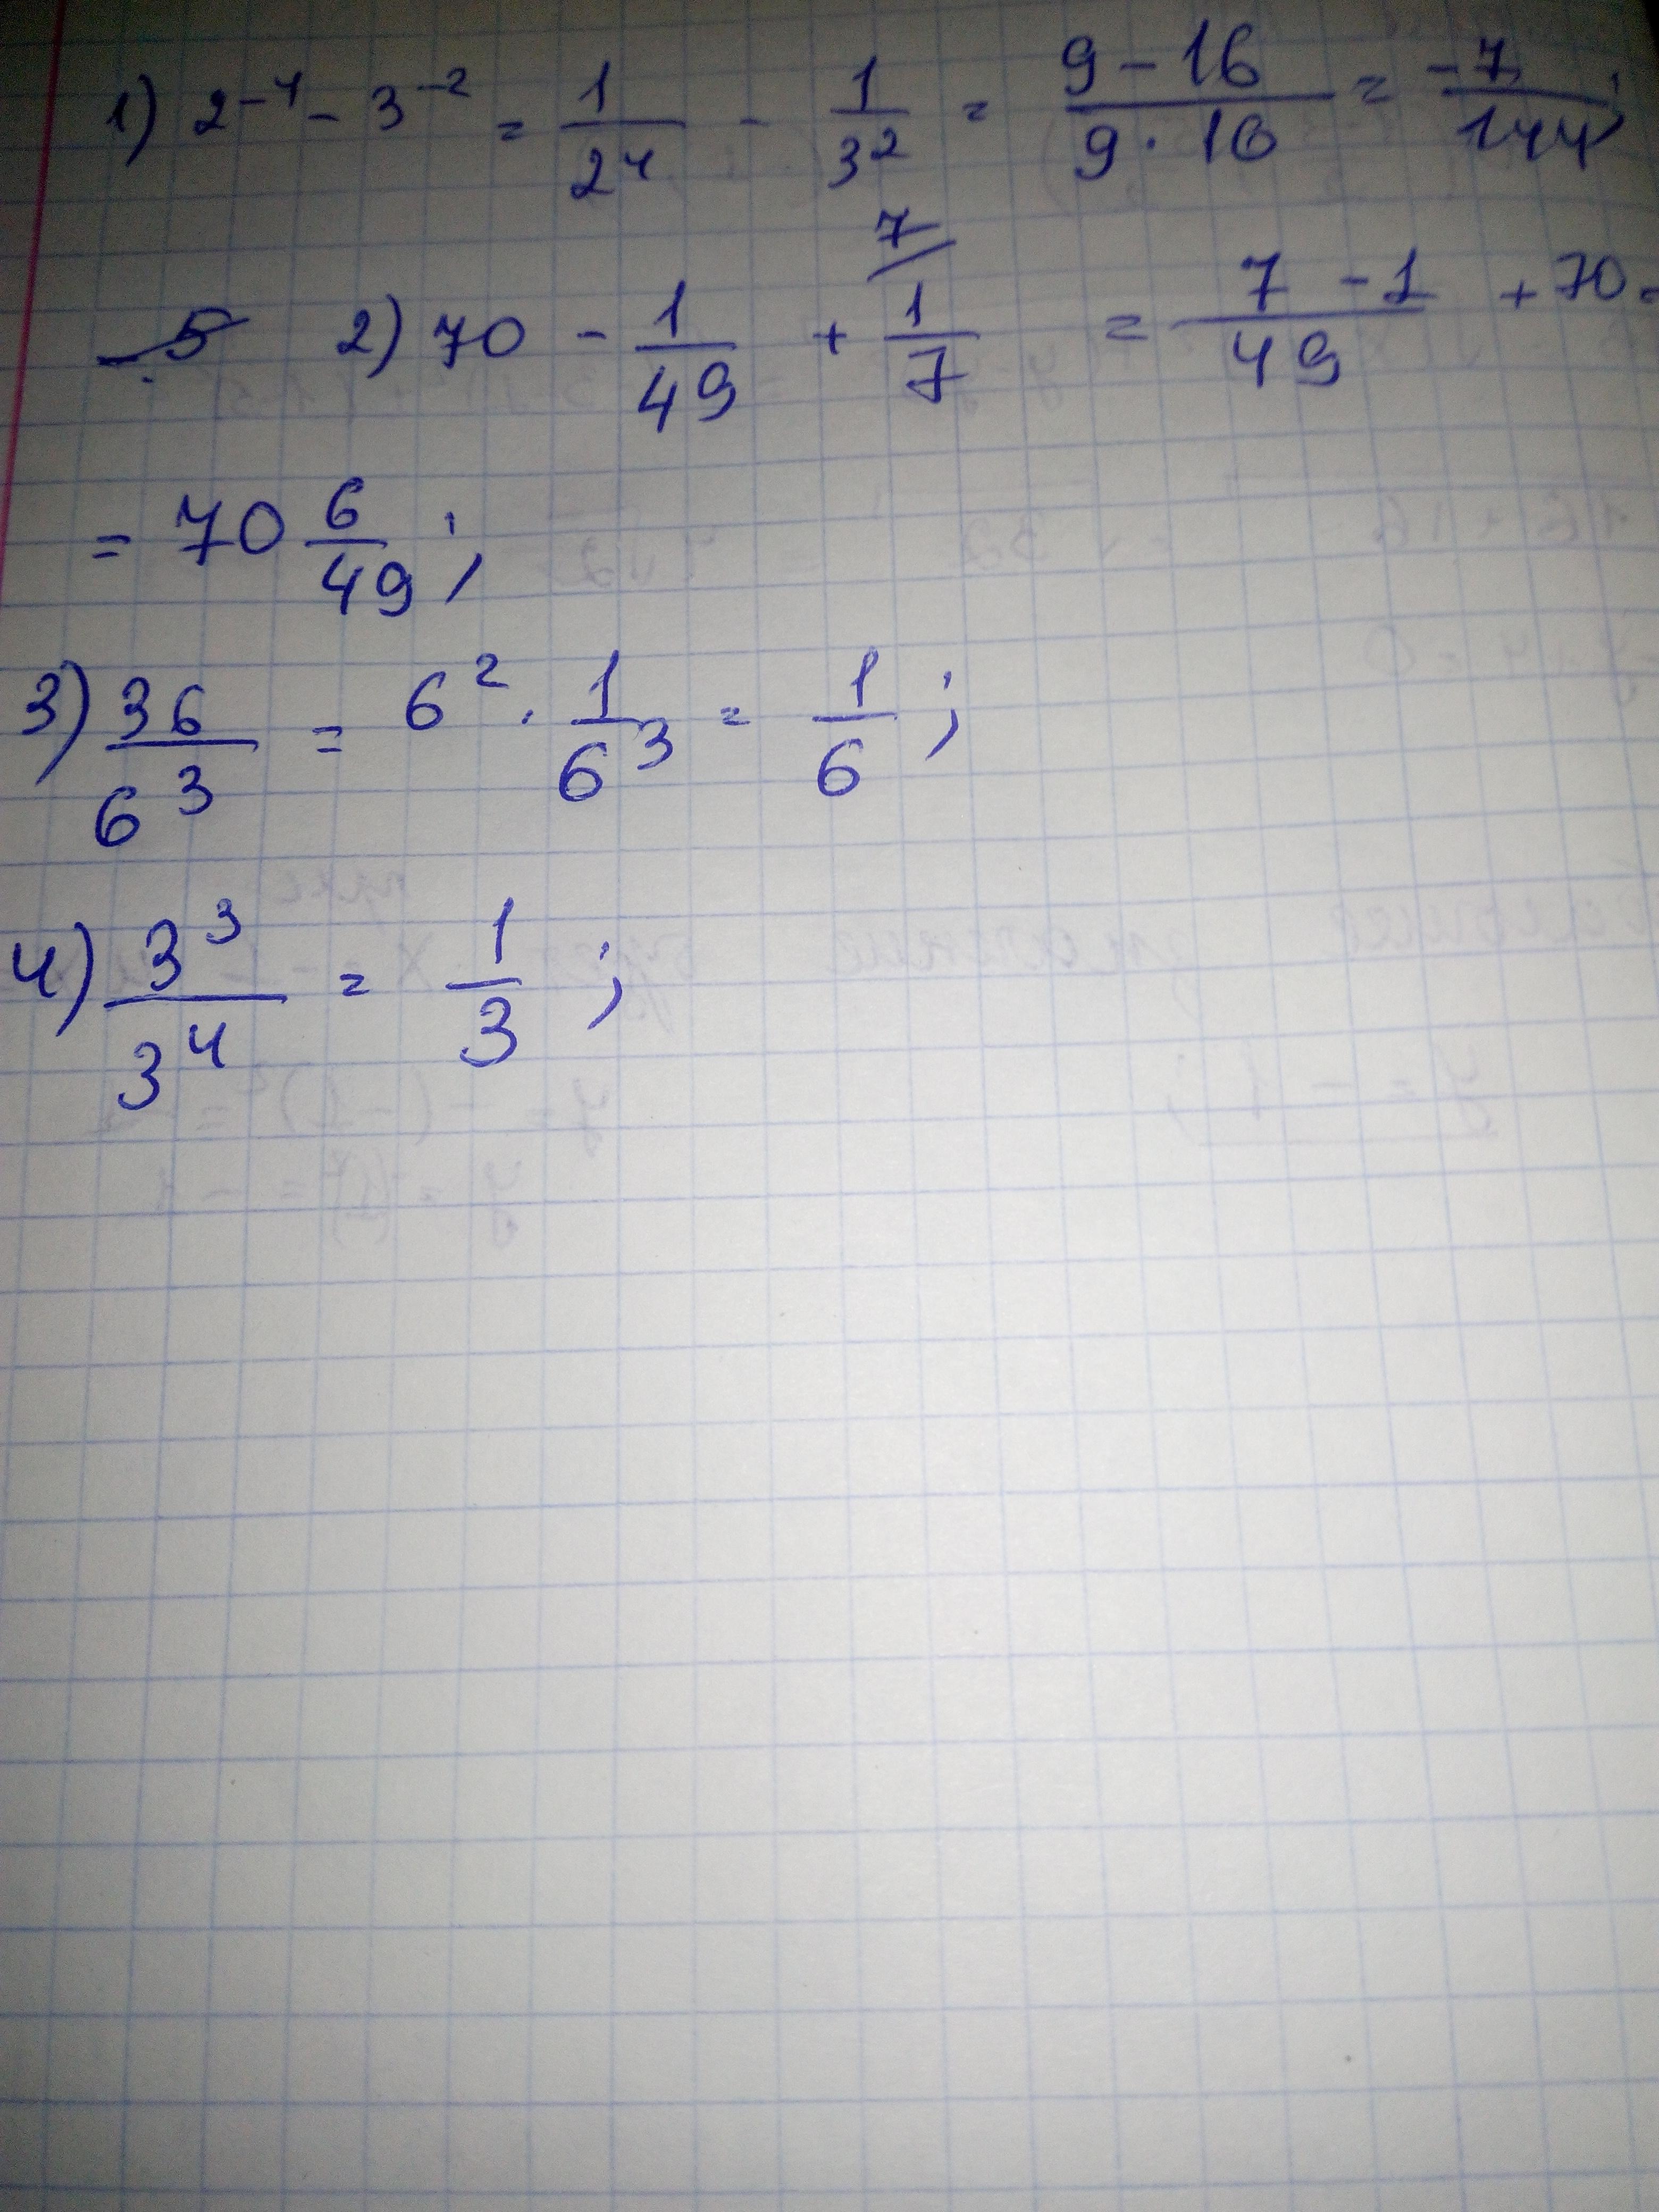 1) 2⁻⁴ - 3⁻² = 1/2⁴ - 1/3² = (9 - 16)/(9 · 16) = -7/144;
2) 70 - 1/49 + 7/ 1/7 = (7 - 1)/49 + 70 =
= 70 6/49;
3) 36/6³ = 6² · 1/6³ = 1/6;
4) 3³/3⁴ = 1/3;